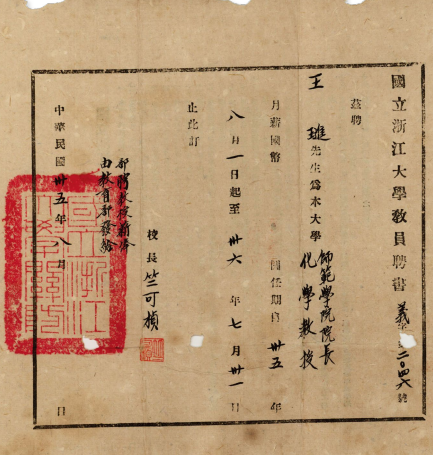 國立浙江大學教員聘書 義字第二〇四六號
茲聘
王璡先生爲本大學師範學院院長
化學教授
月薪國幣 圓任期自卅五年
八月一日起至卅六年七月卅一日
止此訂
校長 竺可楨
部聘教授薪俸
由教育部發給
中華民國卅五年八月 日